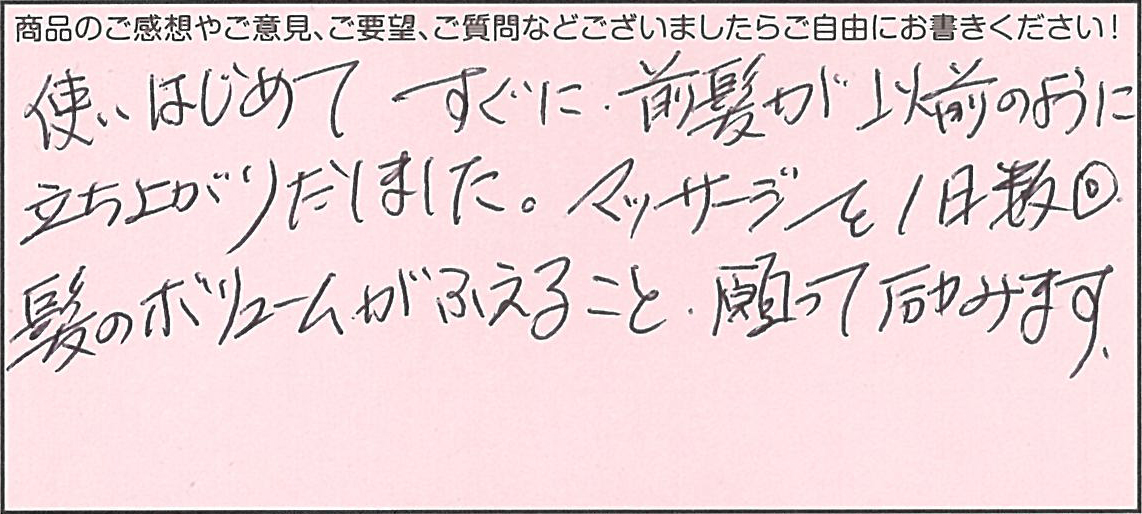 商品のご感想やご意見、ご要望、ご質問などございましたらご自由にお書きください！
使いはじめて すぐに、前髪が以前のように
立ち上がりだしました。マッサージを1日数回
髪のボリュームがふえること、願って励みます、